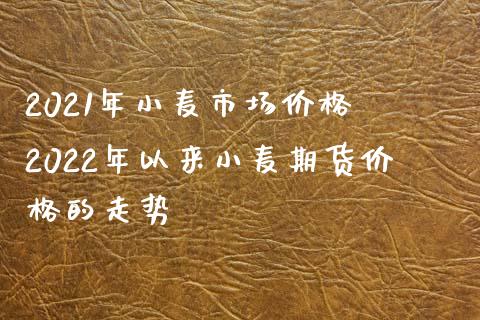 2021年小麦市场价格
2022年以来小麦期货价
格的走势